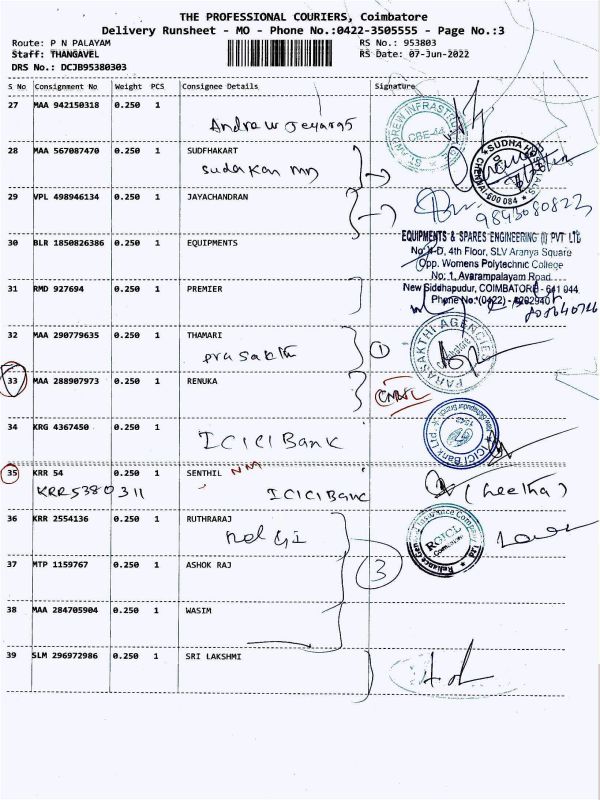 THE PROFESSIONAL COURIERS, Coimbatore
Delivery Runsheet - MO - Phone No.:0422-3505555 - Page No.:3
Route: P N PALAYAM
RS No.: 953803
Staff: THANGAVEL
RS Date: 07-Jun-2022
DRS No.: DCJB95380303
S No Consignment No Weight PCS Consignee Details Signature
27 MAA 942150318 0.250 1
Andrew Jeyaraj
ST. ANDREW INFRASTR
CBE-44
28 MAA 567087470 0.250 1 SUDFHAKART
SUDHA HOSPITALS
CHENNAI 600 084
29 VPL 498946134 0.250 1 JAYACHANDRAN
9843080823
30 BLR 1850826386 0.250 1 EQUIPMENTS
EQUIPMENTS & SPARES ENGINEERING (I) PVT LTD
4th Floor, SLV Aranya Square
Opp. Womens Polytechnic College
No: 1, Avarampalayam Road
New Siddhapudur, COIMBATORE - 641 044
Phone No: (0422) - 4202940
31 RMD 927694 0.250 1 PREMIER
32 MAA 290779635 0.250 1 THAMARI
prasakthi
1
PARASAKTHI AGENCIES
33 MAA 288907973 0.250 1 RENUKA
34 KRG 4367450 0.250 1
ICICI Bank
ICICI Bank Ltd
35 KRR 54 0.250 1 SENTHIL NM
KRR5380311
ICICI Bank
(Geetha)
36 KRR 2554136 0.250 1 RUTHRARAJ
Reliance General Insurance Company Ltd
RGICL
37 MTP 1159767 0.250 1 ASHOK RAJ
3
38 MAA 284705904 0.250 1 WASIM
39 SLM 296972986 0.250 1 SRI LAKSHMI